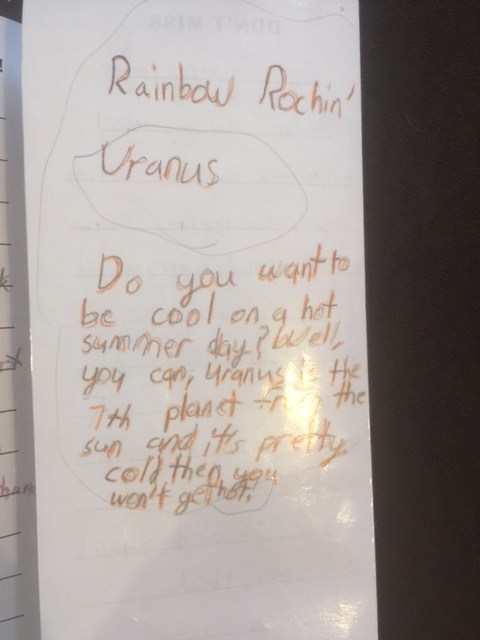 Rainbow Rochin'
Uranus
Do you want to
be cool on a hot
summer day? Well,
you can, Uranus is the
7th planet from the
sun and it's pretty
cold then you
won't get hot!